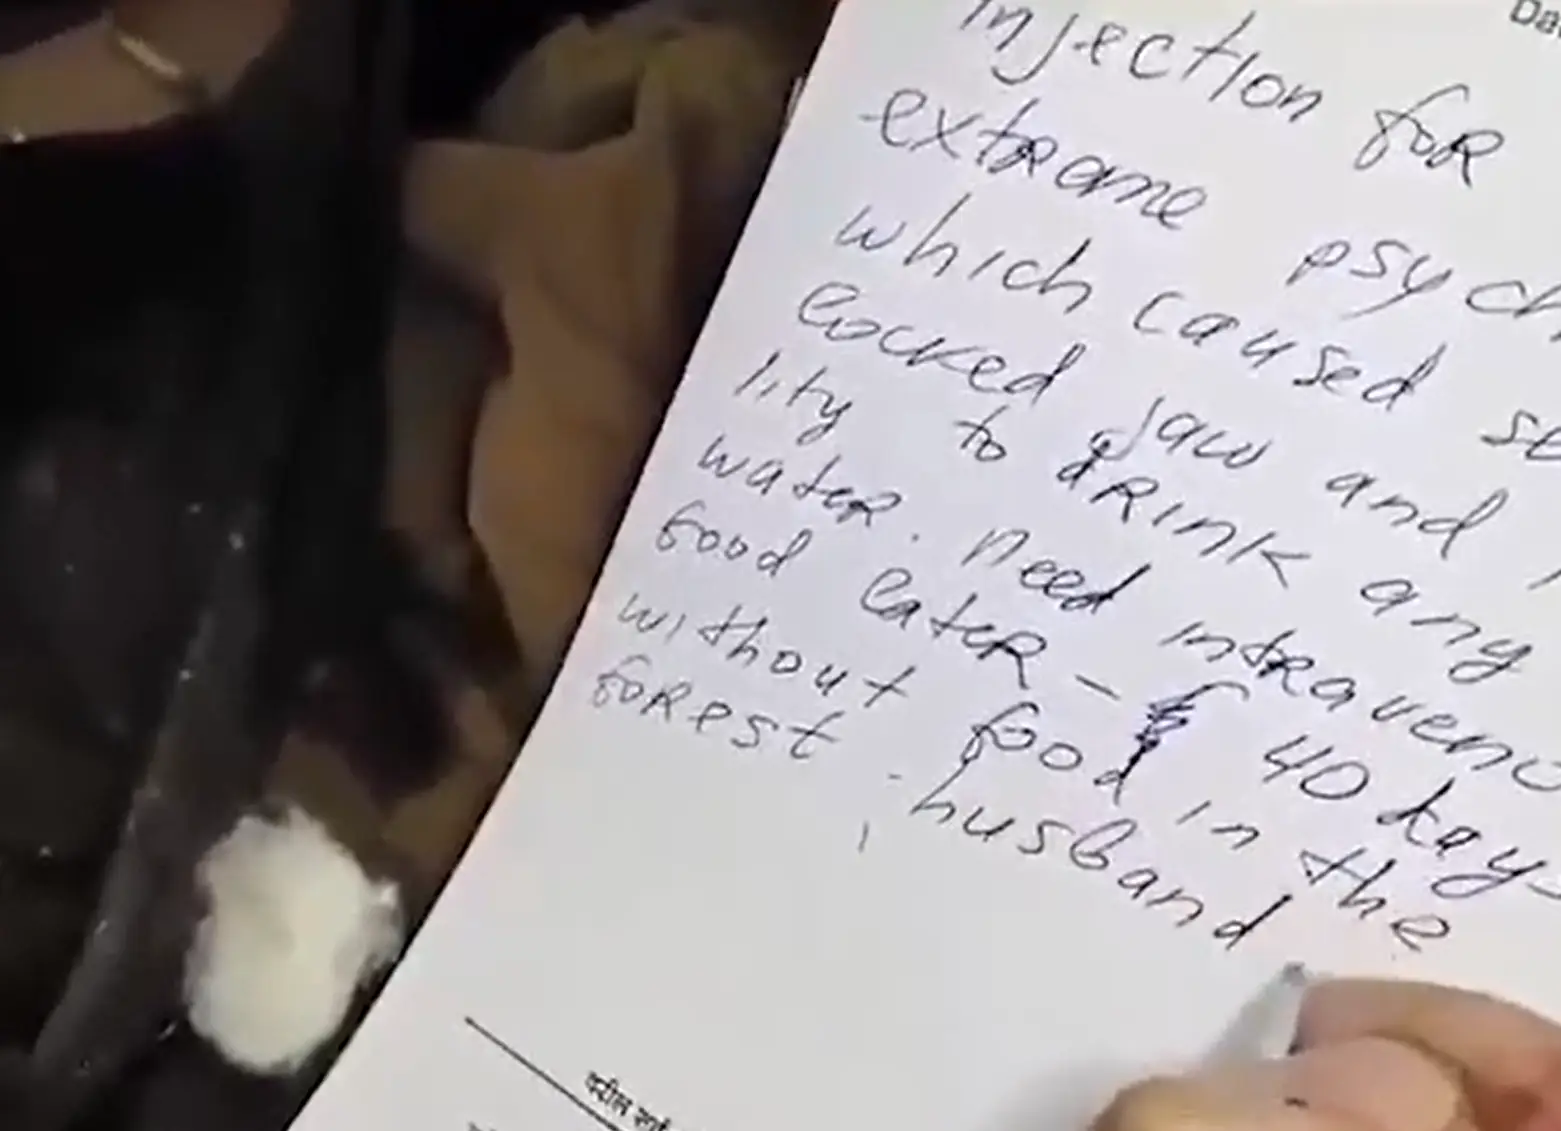 Da
injection for
extreme psych
which caused se
locked jaw and
lity to drink any
water. need intraveno
food eater - 40 days
without food in the
forest. husband